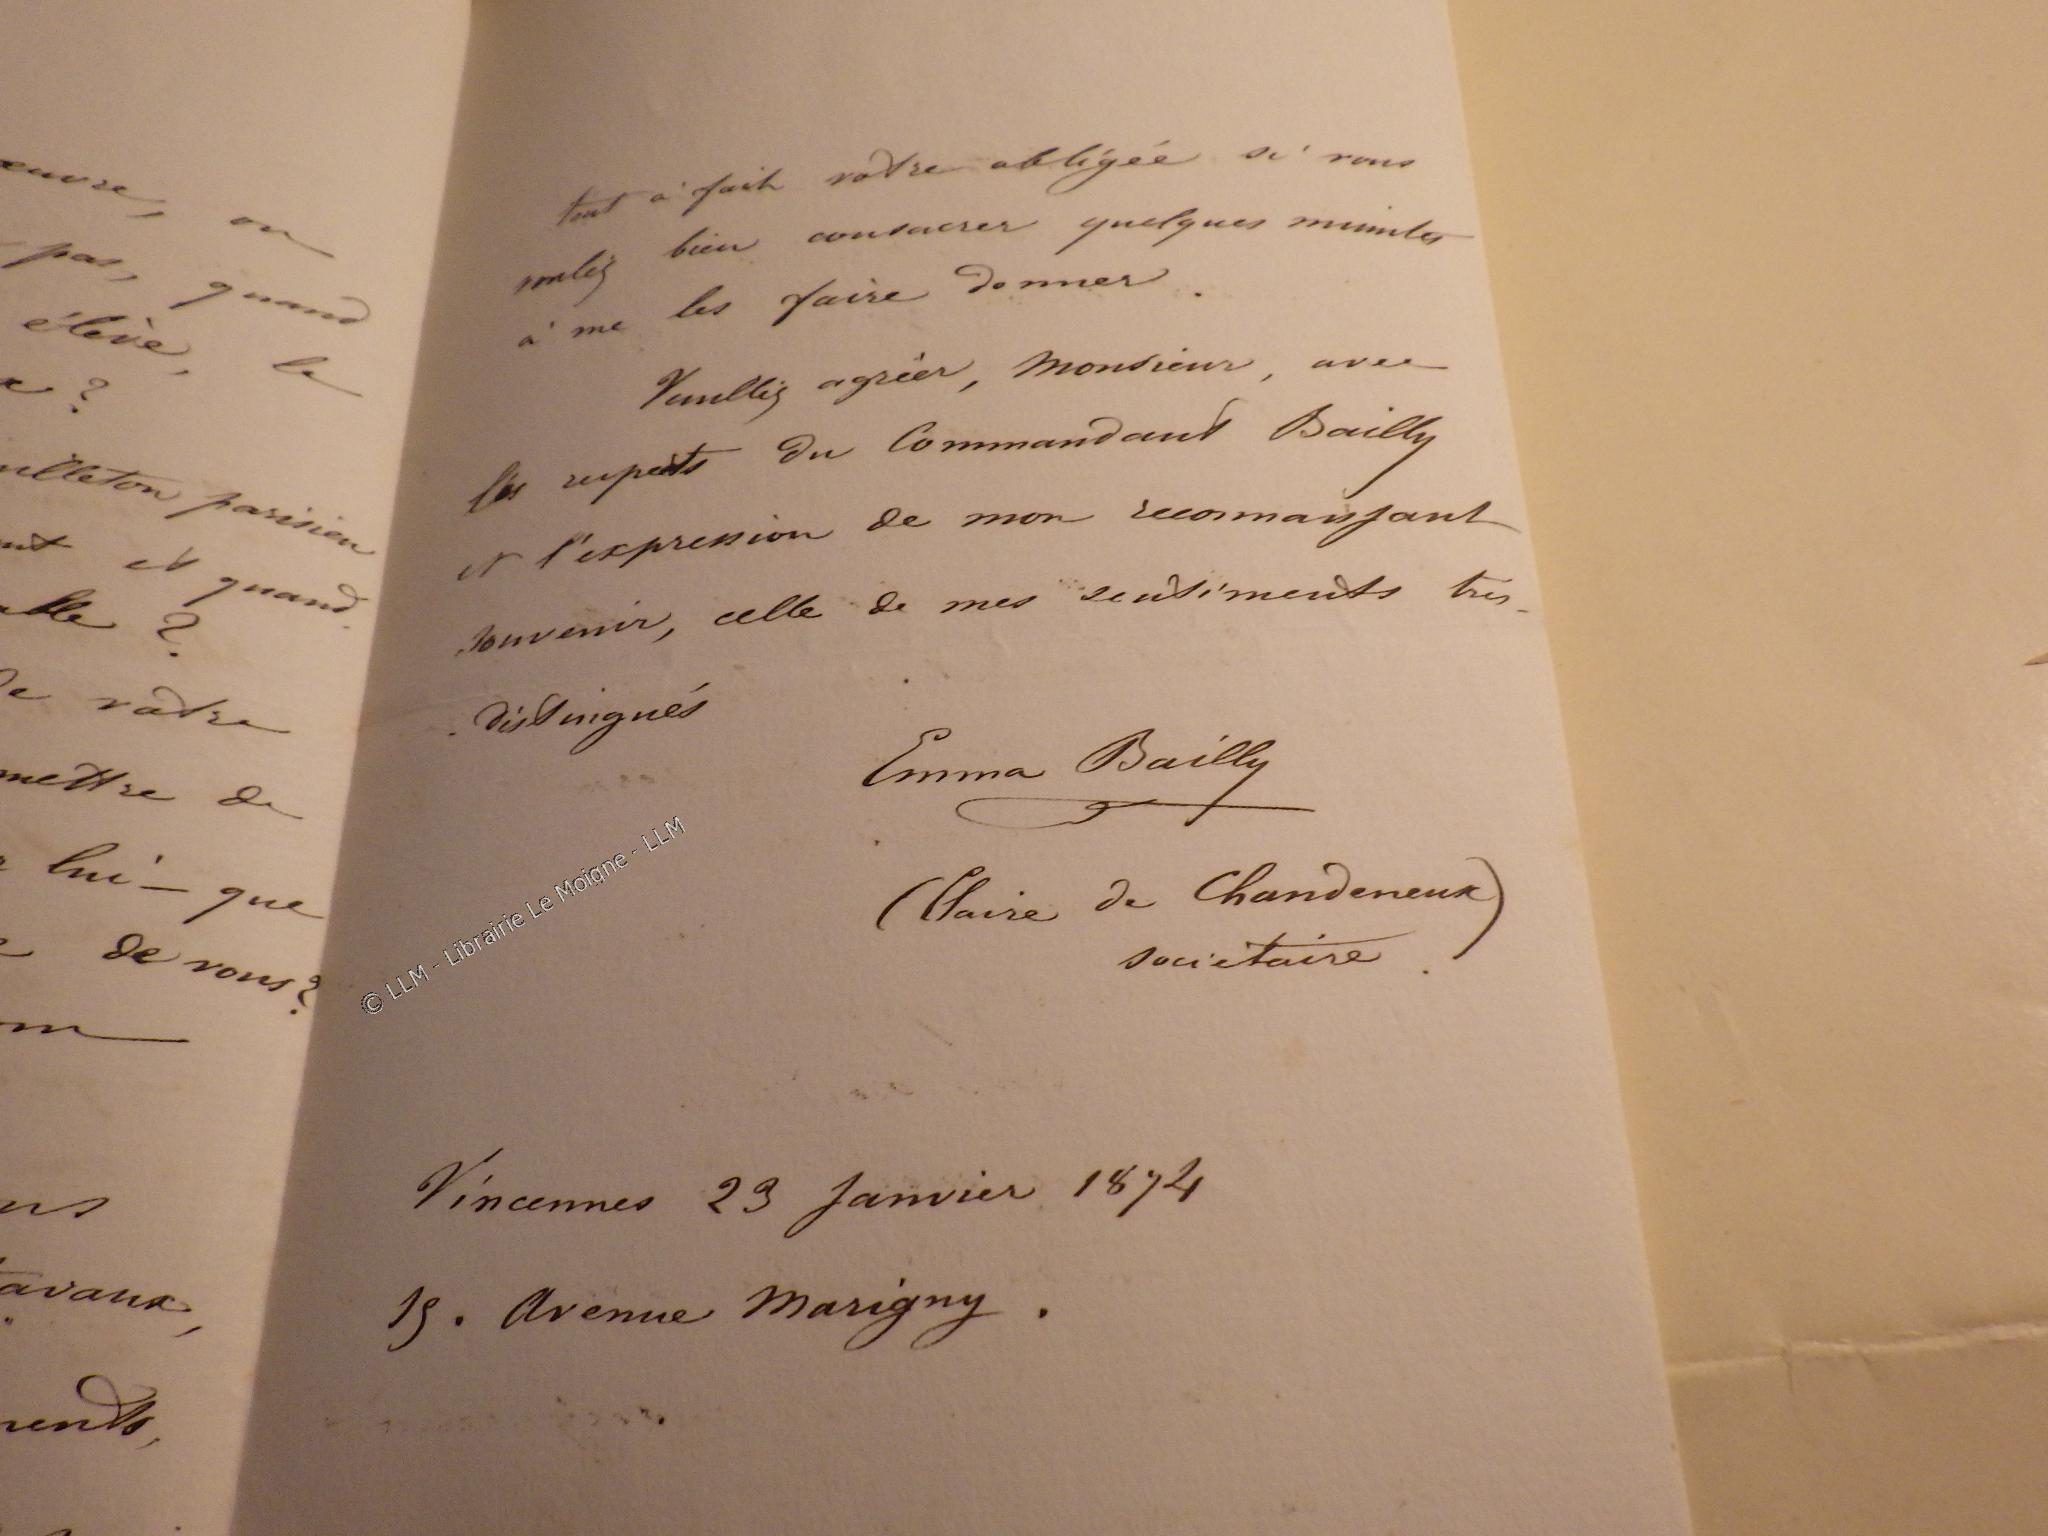 œuvre, on
pas, quand
élève, le
?
feuilleton parisien
et quand
?
de votre
mettre de
lui - que
de vous?
travaux,
tout à fait votre obligée si vous
voulez bien consacrer quelques minutes
à me les faire donner.
Veuillez agréer, Monsieur, avec
les respects du Commandant Bailly
et l'expression de mon reconnaissant
souvenir, celle de mes sentiments très-
distingués
Emma Bailly
(Claire de Chandeneux)
sociétaire.
Vincennes 23 Janvier 1874
19. Avenue Marigny.
© LLM - Librairie Le Moigne - LLM